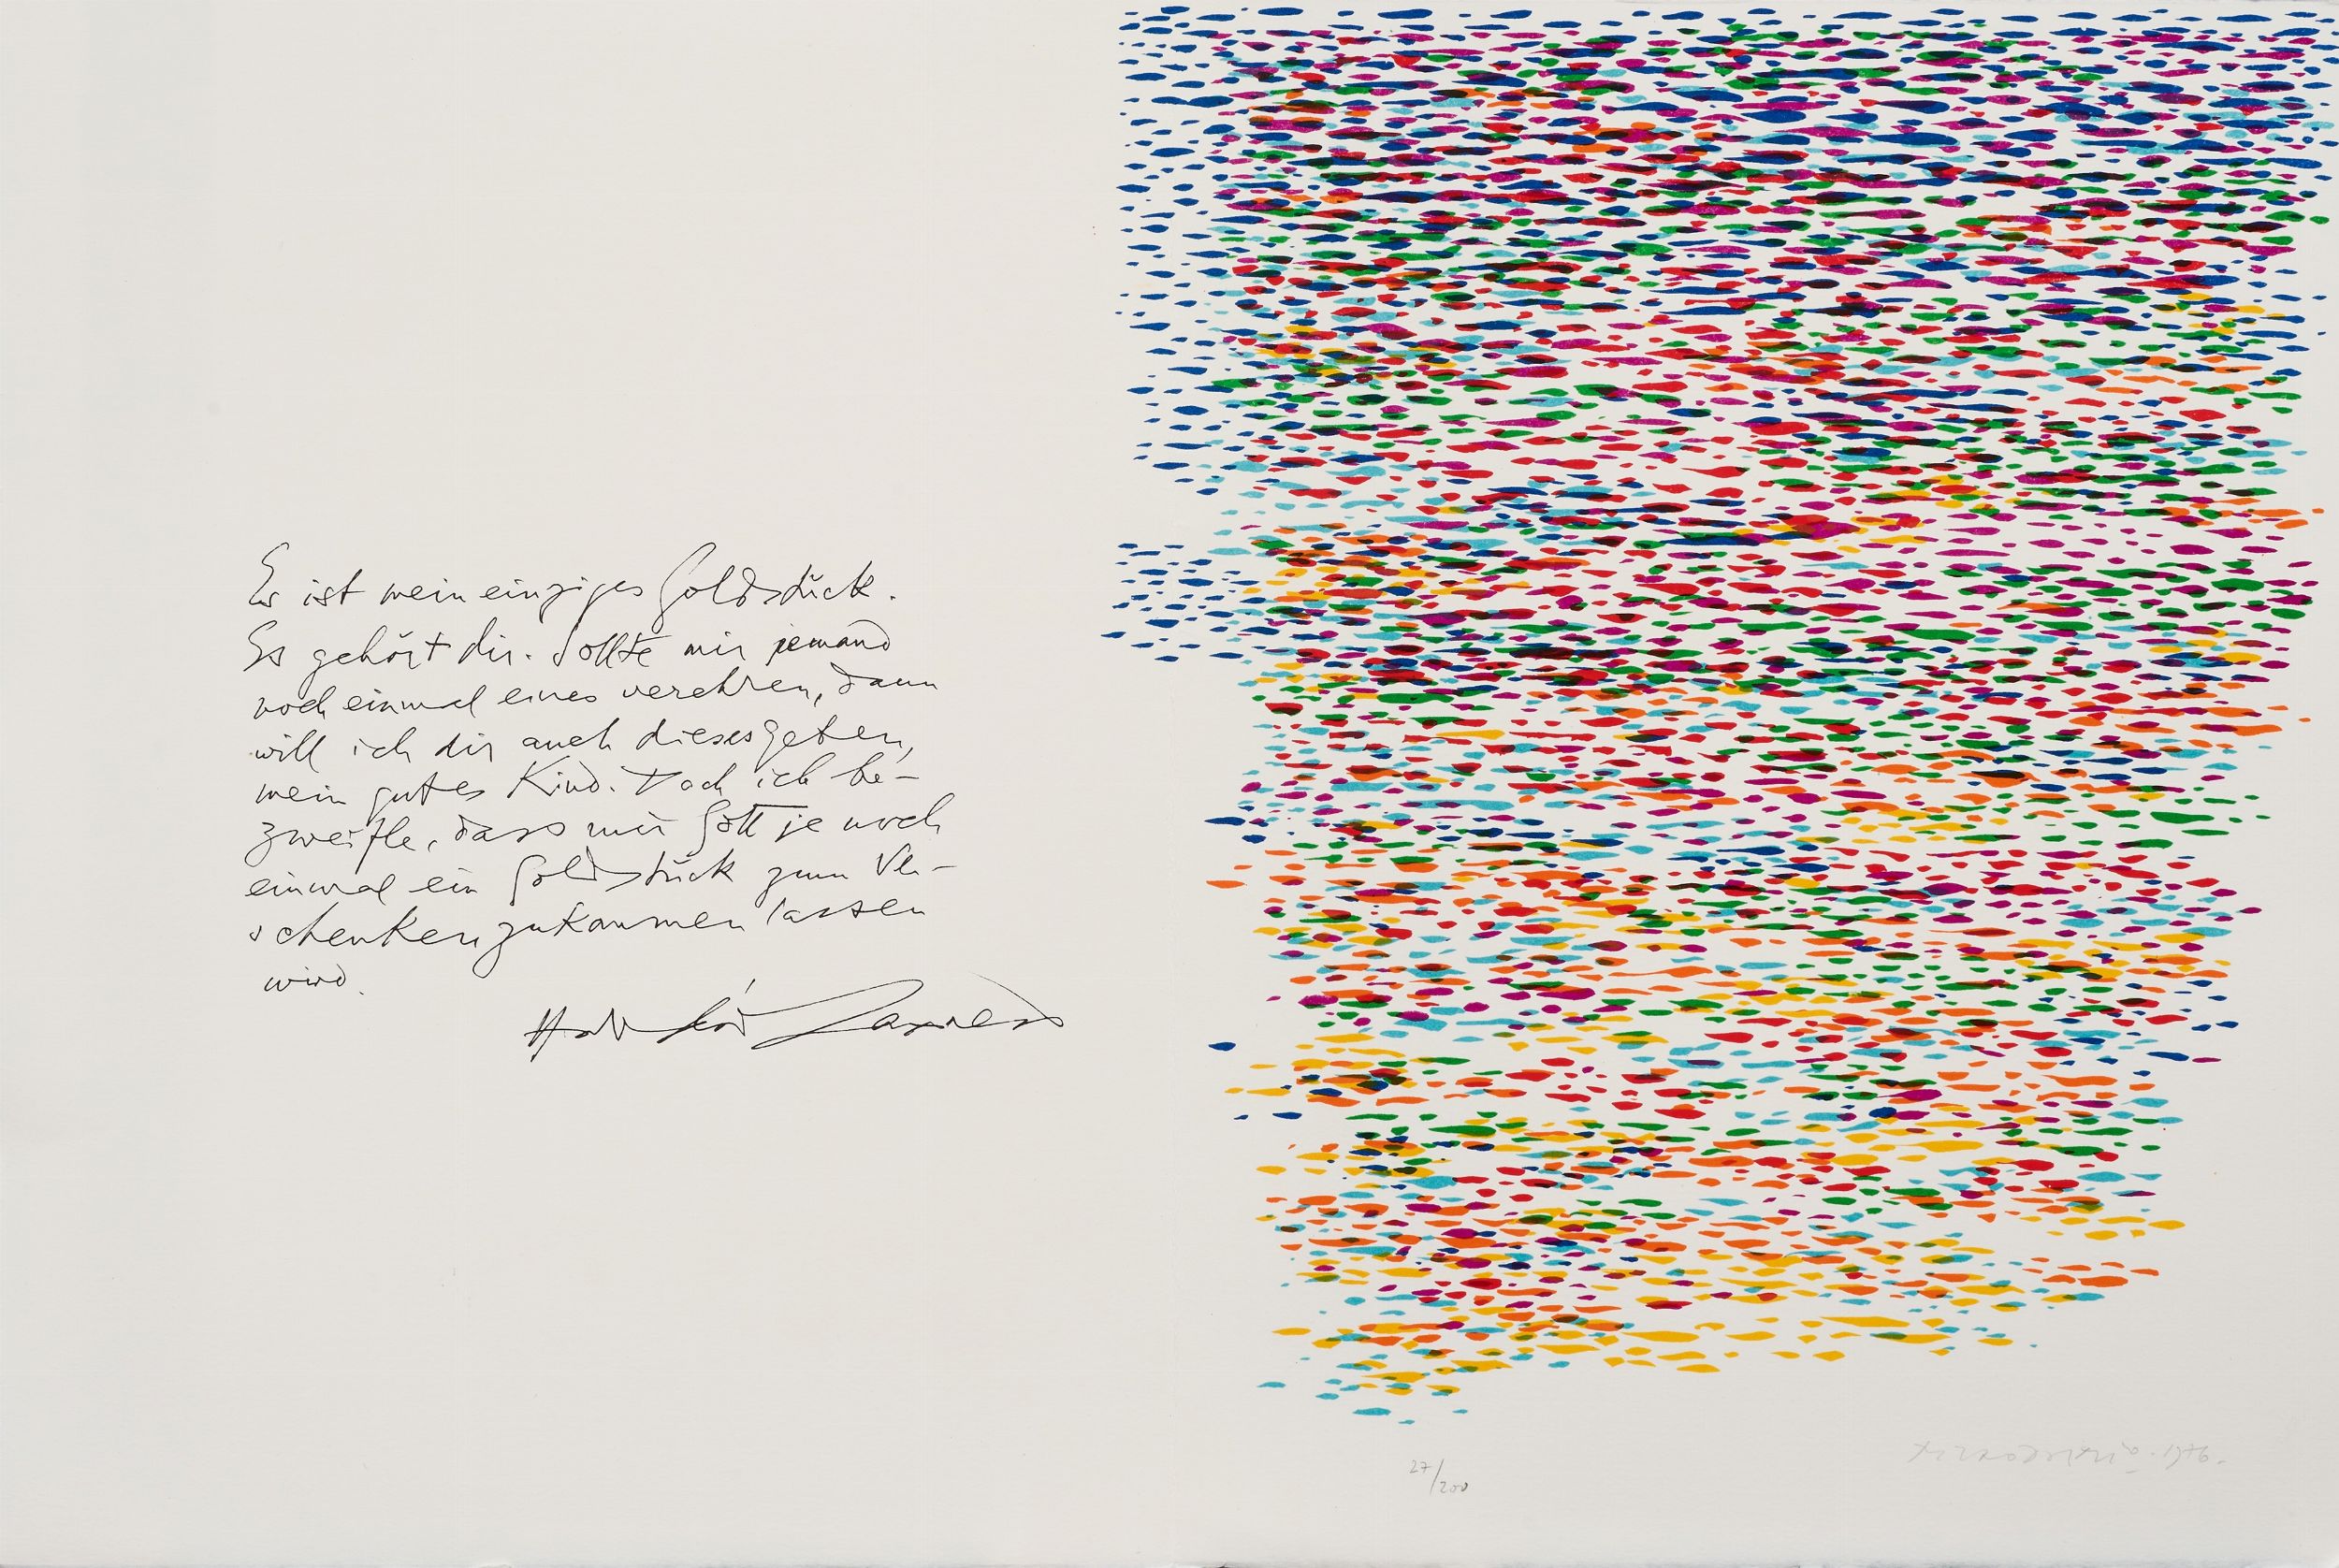 Es ist mein einziges Goldstück.
Es gehört dir. Sollte mir jemand
noch einmal eines verehren, dann
will ich dir auch dieses geben,
mein gutes Kind. Doch ich be-
zweifle, dass mir Gott je noch
einmal ein Goldstück zum Ver-
schenken zukommen lassen
wird.
Halldór Laxness
27/200
Piero Dorazio. 1976.